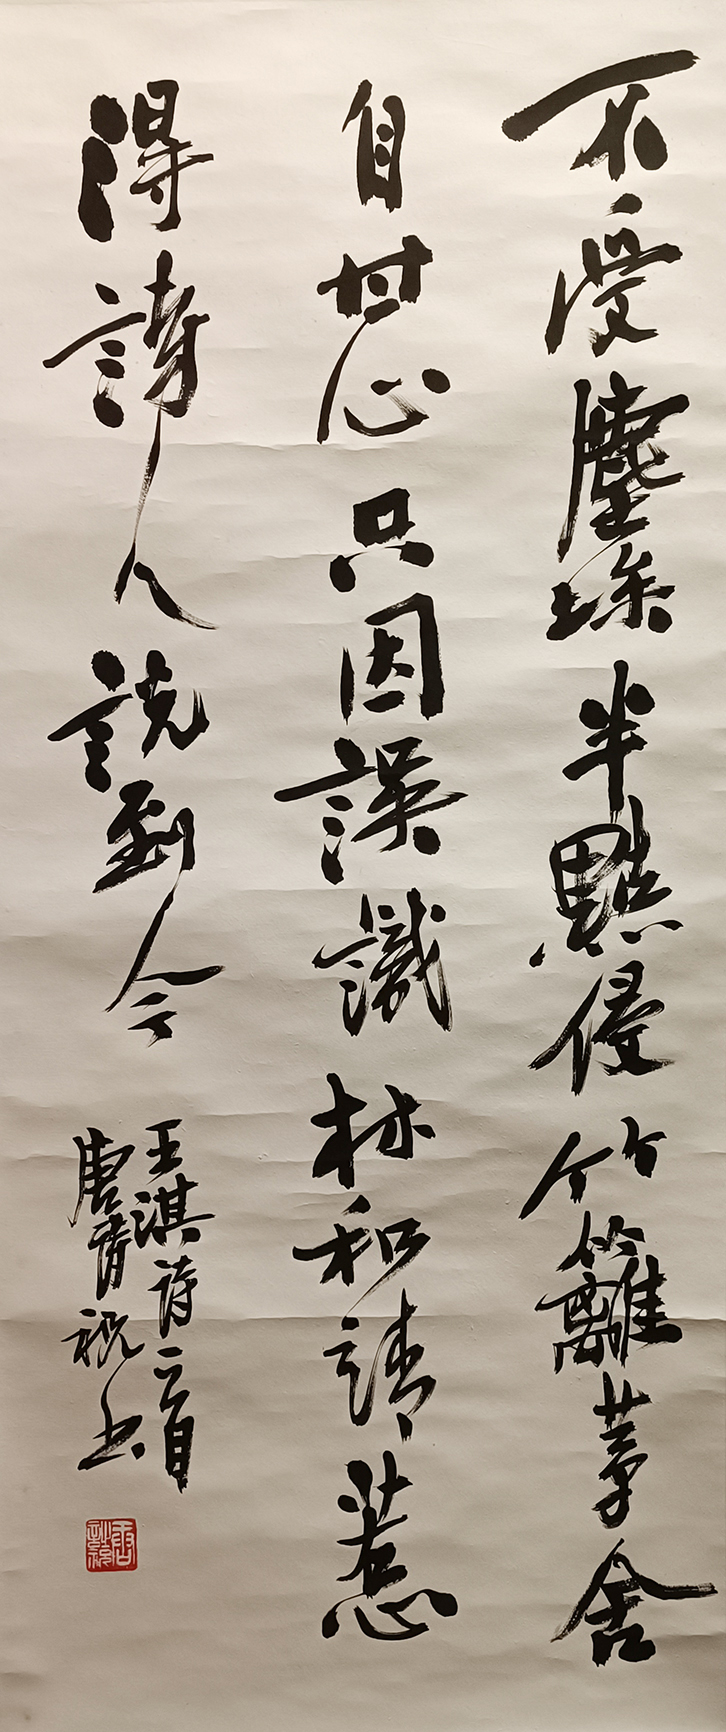 不受塵埃半點侵竹籬茅舍
自甘心只因誤識林和靖惹
得詩人說到今
王淇詩一首
唐詩祝书
唐詩祝